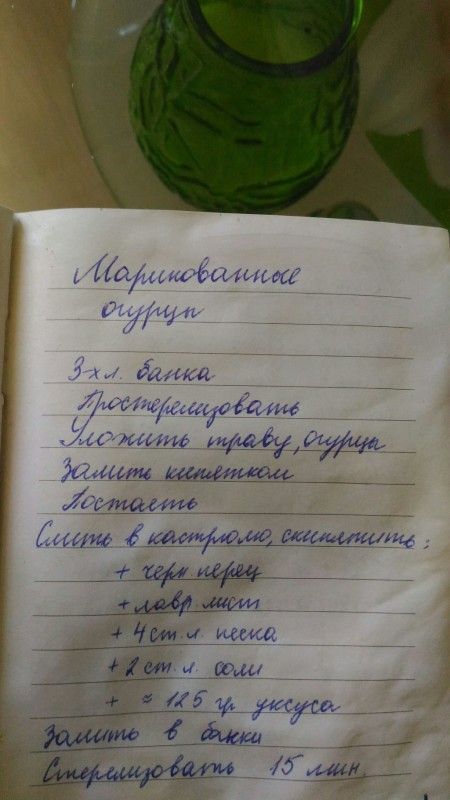 Маринованные
огурцы
3-х л. банка
Простерелизовать
Уложить траву, огурцы
Залить кипятком
Постаеть
Слить в кастрюлю, скипятить:
+ черн перец
+ лавр. лист
+ 4 ст. л. песка
+ 2 ст. л. соли
+ ≈ 125 гр уксуса
Залить в банки
Стерелизовать 15 мин.